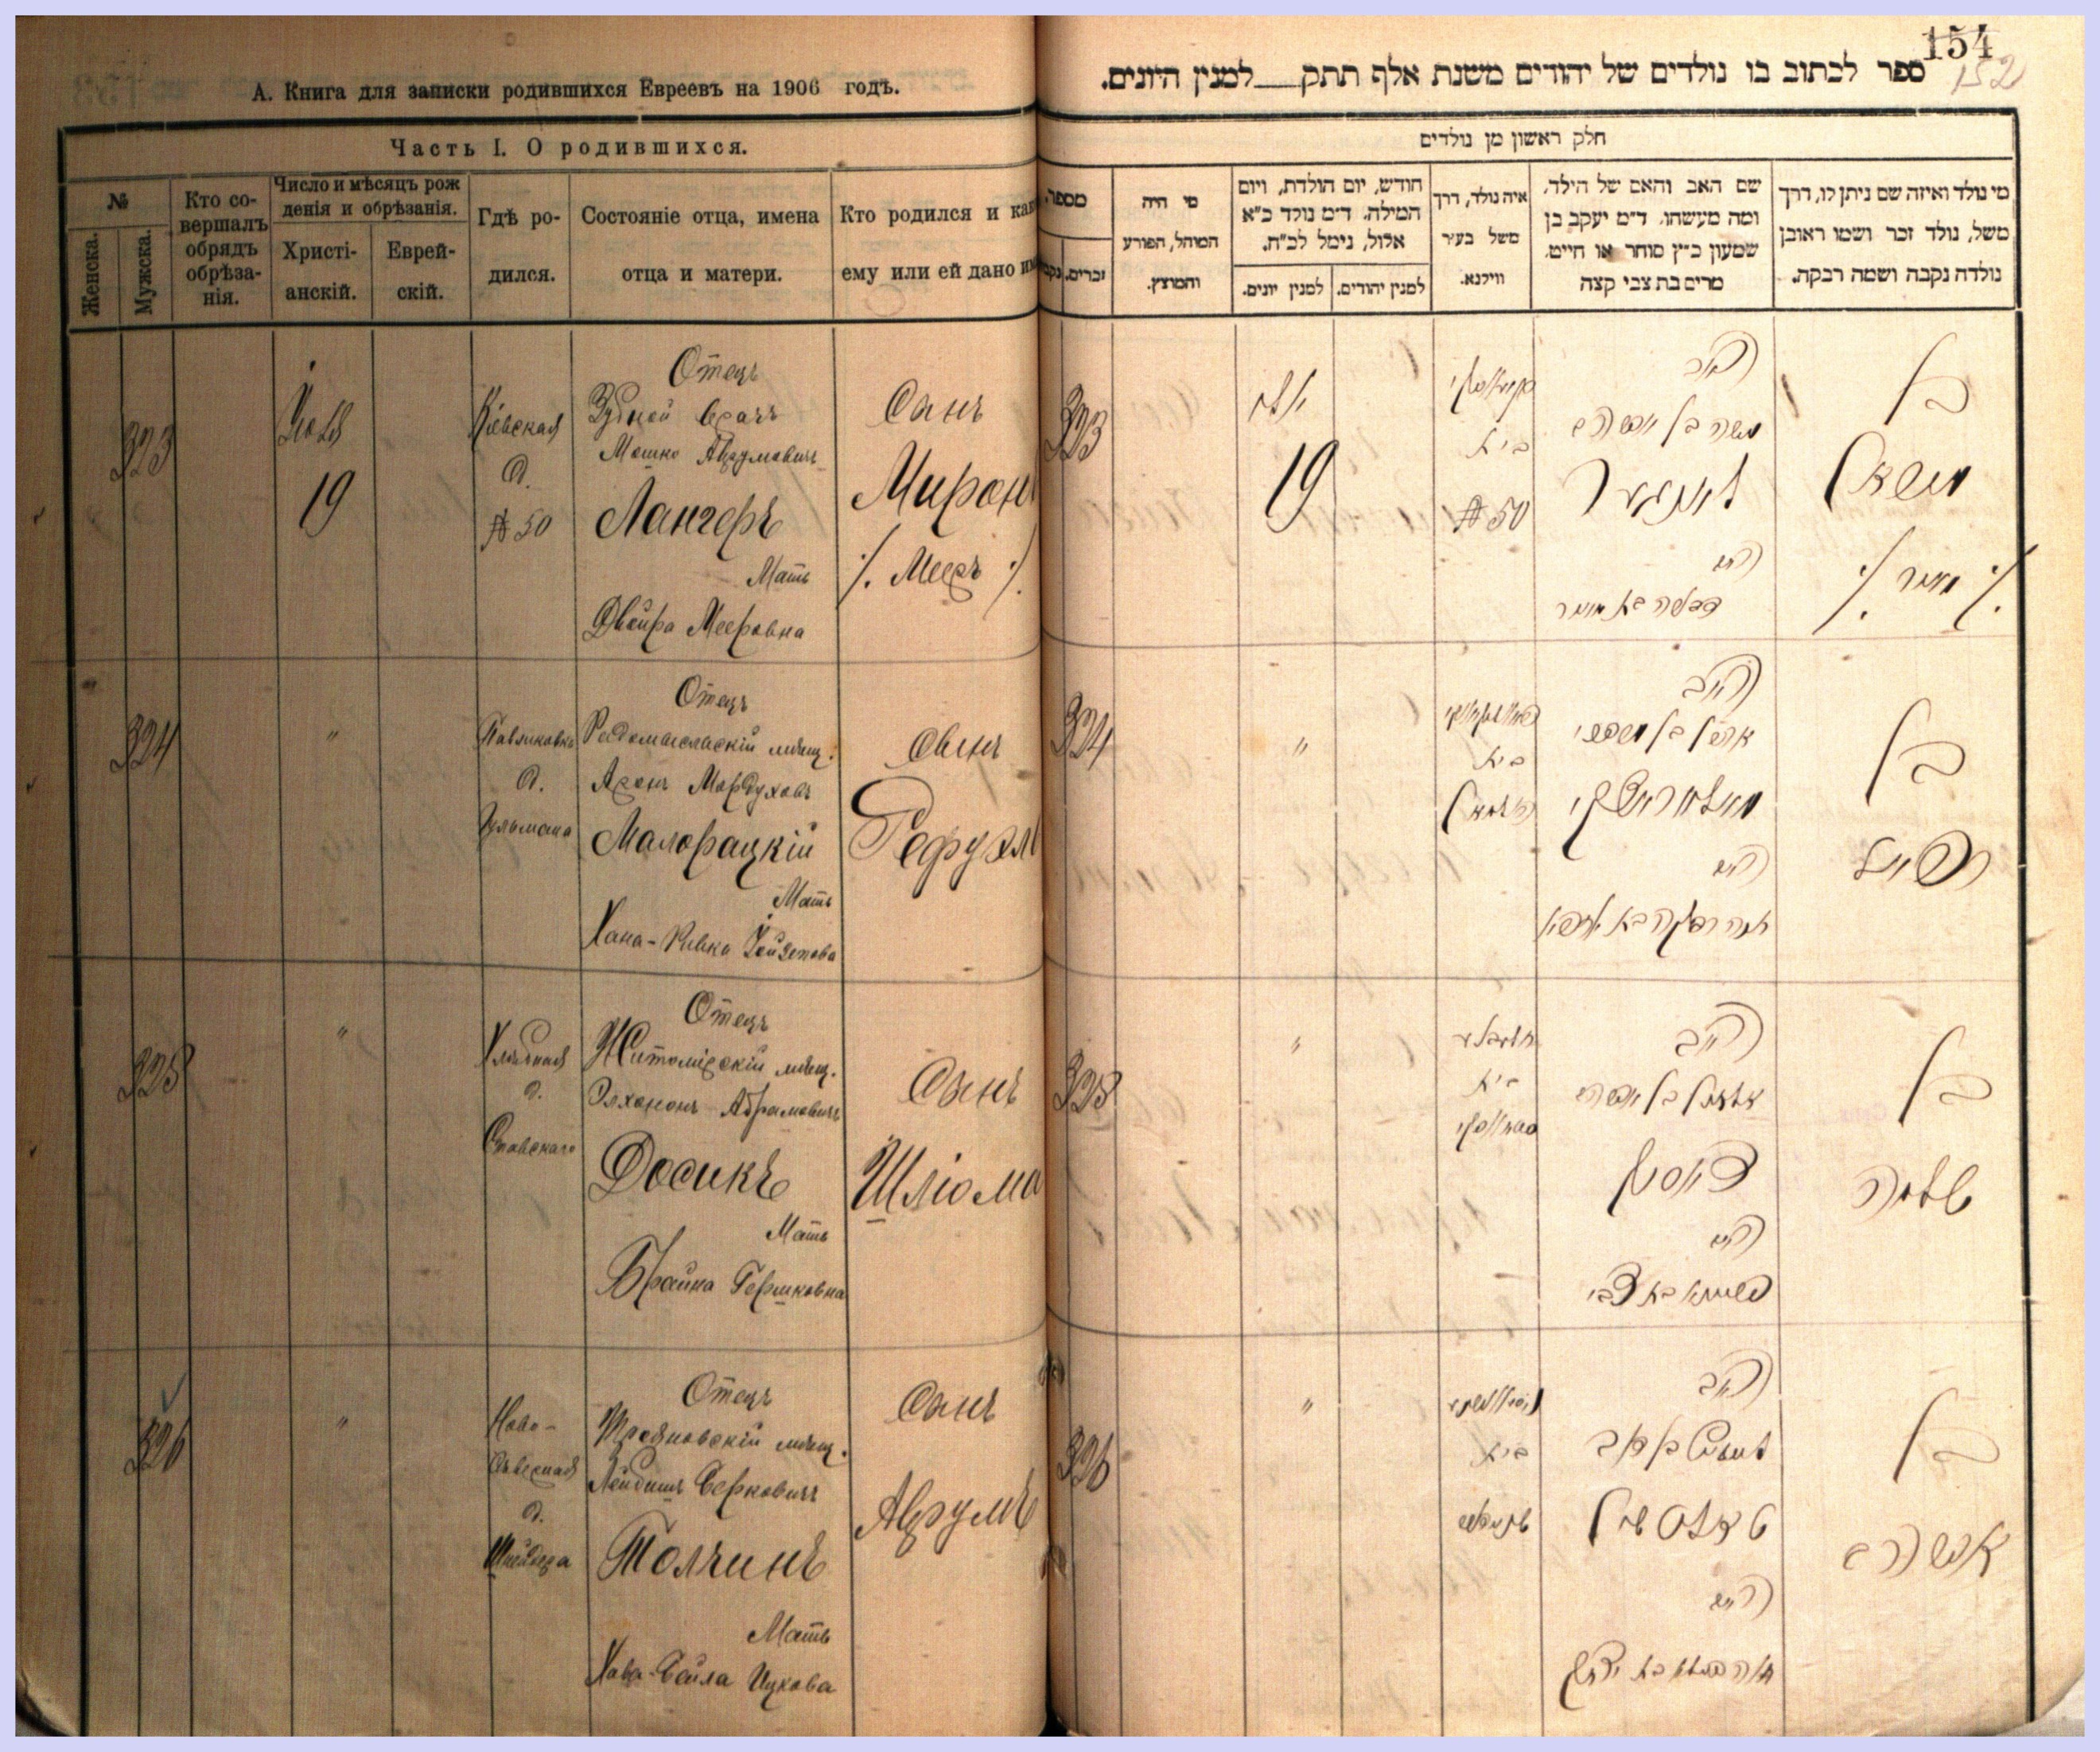 А. Книга для записки родившихся Евреевъ на 1906 годъ.
Часть I. О родившихся.
№
Женска.
Мужска.
Кто со-
вершалъ
обрядъ
обрѣза-
нія.
Число и мѣсяцъ рож
денія и обрѣзанія.
Христі-
анскій.
Еврей-
скій.
Гдѣ ро-
дился.
Состояніе отца, имена
отца и матери.
Кто родился и как
ему или ей дано им
323
Юля
19
Кіевская
д.
№ 50
Отецъ
Зубной врачъ
Мошко Аврумовичъ
Лангеръ
Мать
Двойра Мееровна
Сынъ
Миронъ
/. Мееръ ./
324
"
д.
Отецъ
Радомысльскій мѣщ.
Аронъ Мордуховъ
Малорацкій
Мать
Хана-Ривка
Сынъ
Рефуэлъ
325
"
Хлѣбная
д.
Ставскаго
Отецъ
Житомірскій мѣщ.
Элхононъ Абрамовичъ
Досикъ
Мать
Брайна Гершковна
Сынъ
Шліома
326
"
Ново-
Сѣверная
д.
Шнейдера
Отецъ
Трояновскій мѣщ.
Лейбишъ Берковичъ
Толчинъ
Мать
Хава-Бейла Ицкова
Сынъ
Аврумъ
154
152
ספר לכתוב בו נולדים של יהודים משנת אלף תתק__למנין היונים.
חלק ראשון מן נולדים
מספר.
זכרים.
מי היה
המוהל, הפורע
והמוצץ.
חודש, יום הולדת, ויום
המילה. ד״מ נולד כ״א
אלול, נימל לכ״ח.
למנין יונים.
למנין יהודים.
איה נולד, דרך
משל בעיר
ווילנא.
שם האב והאם של הילד,
ומה מעשהו. ד״מ יעקב בן
שמעון כ״ץ סוחר או חייט.
מרים בת צבי קצה
מי נולד ואיזה שם ניתן לו, דרך
משל, נולד זכר ושמו ראובן
נולדה נקבה ושמה רבקה.
323
יולי
19
בית
№ 50
האב
משה בן אברהם
לאנגער
האם
דבורה בת מאיר
בן
מיראן
/. מאיר ./
324
"
בית
האב
אהרן בן מרדכי
מאלאראצקי
האם
חנה רבקה בת
בן
רפאל
325
"
בית
האב
אלחנן בן אברהם
דאסיק
האם
בריינא בת צבי
בן
שלמה
326
"
בית
האב
טאלטשין
האם
חוה ביילא בת יצחק
בן
אברהם